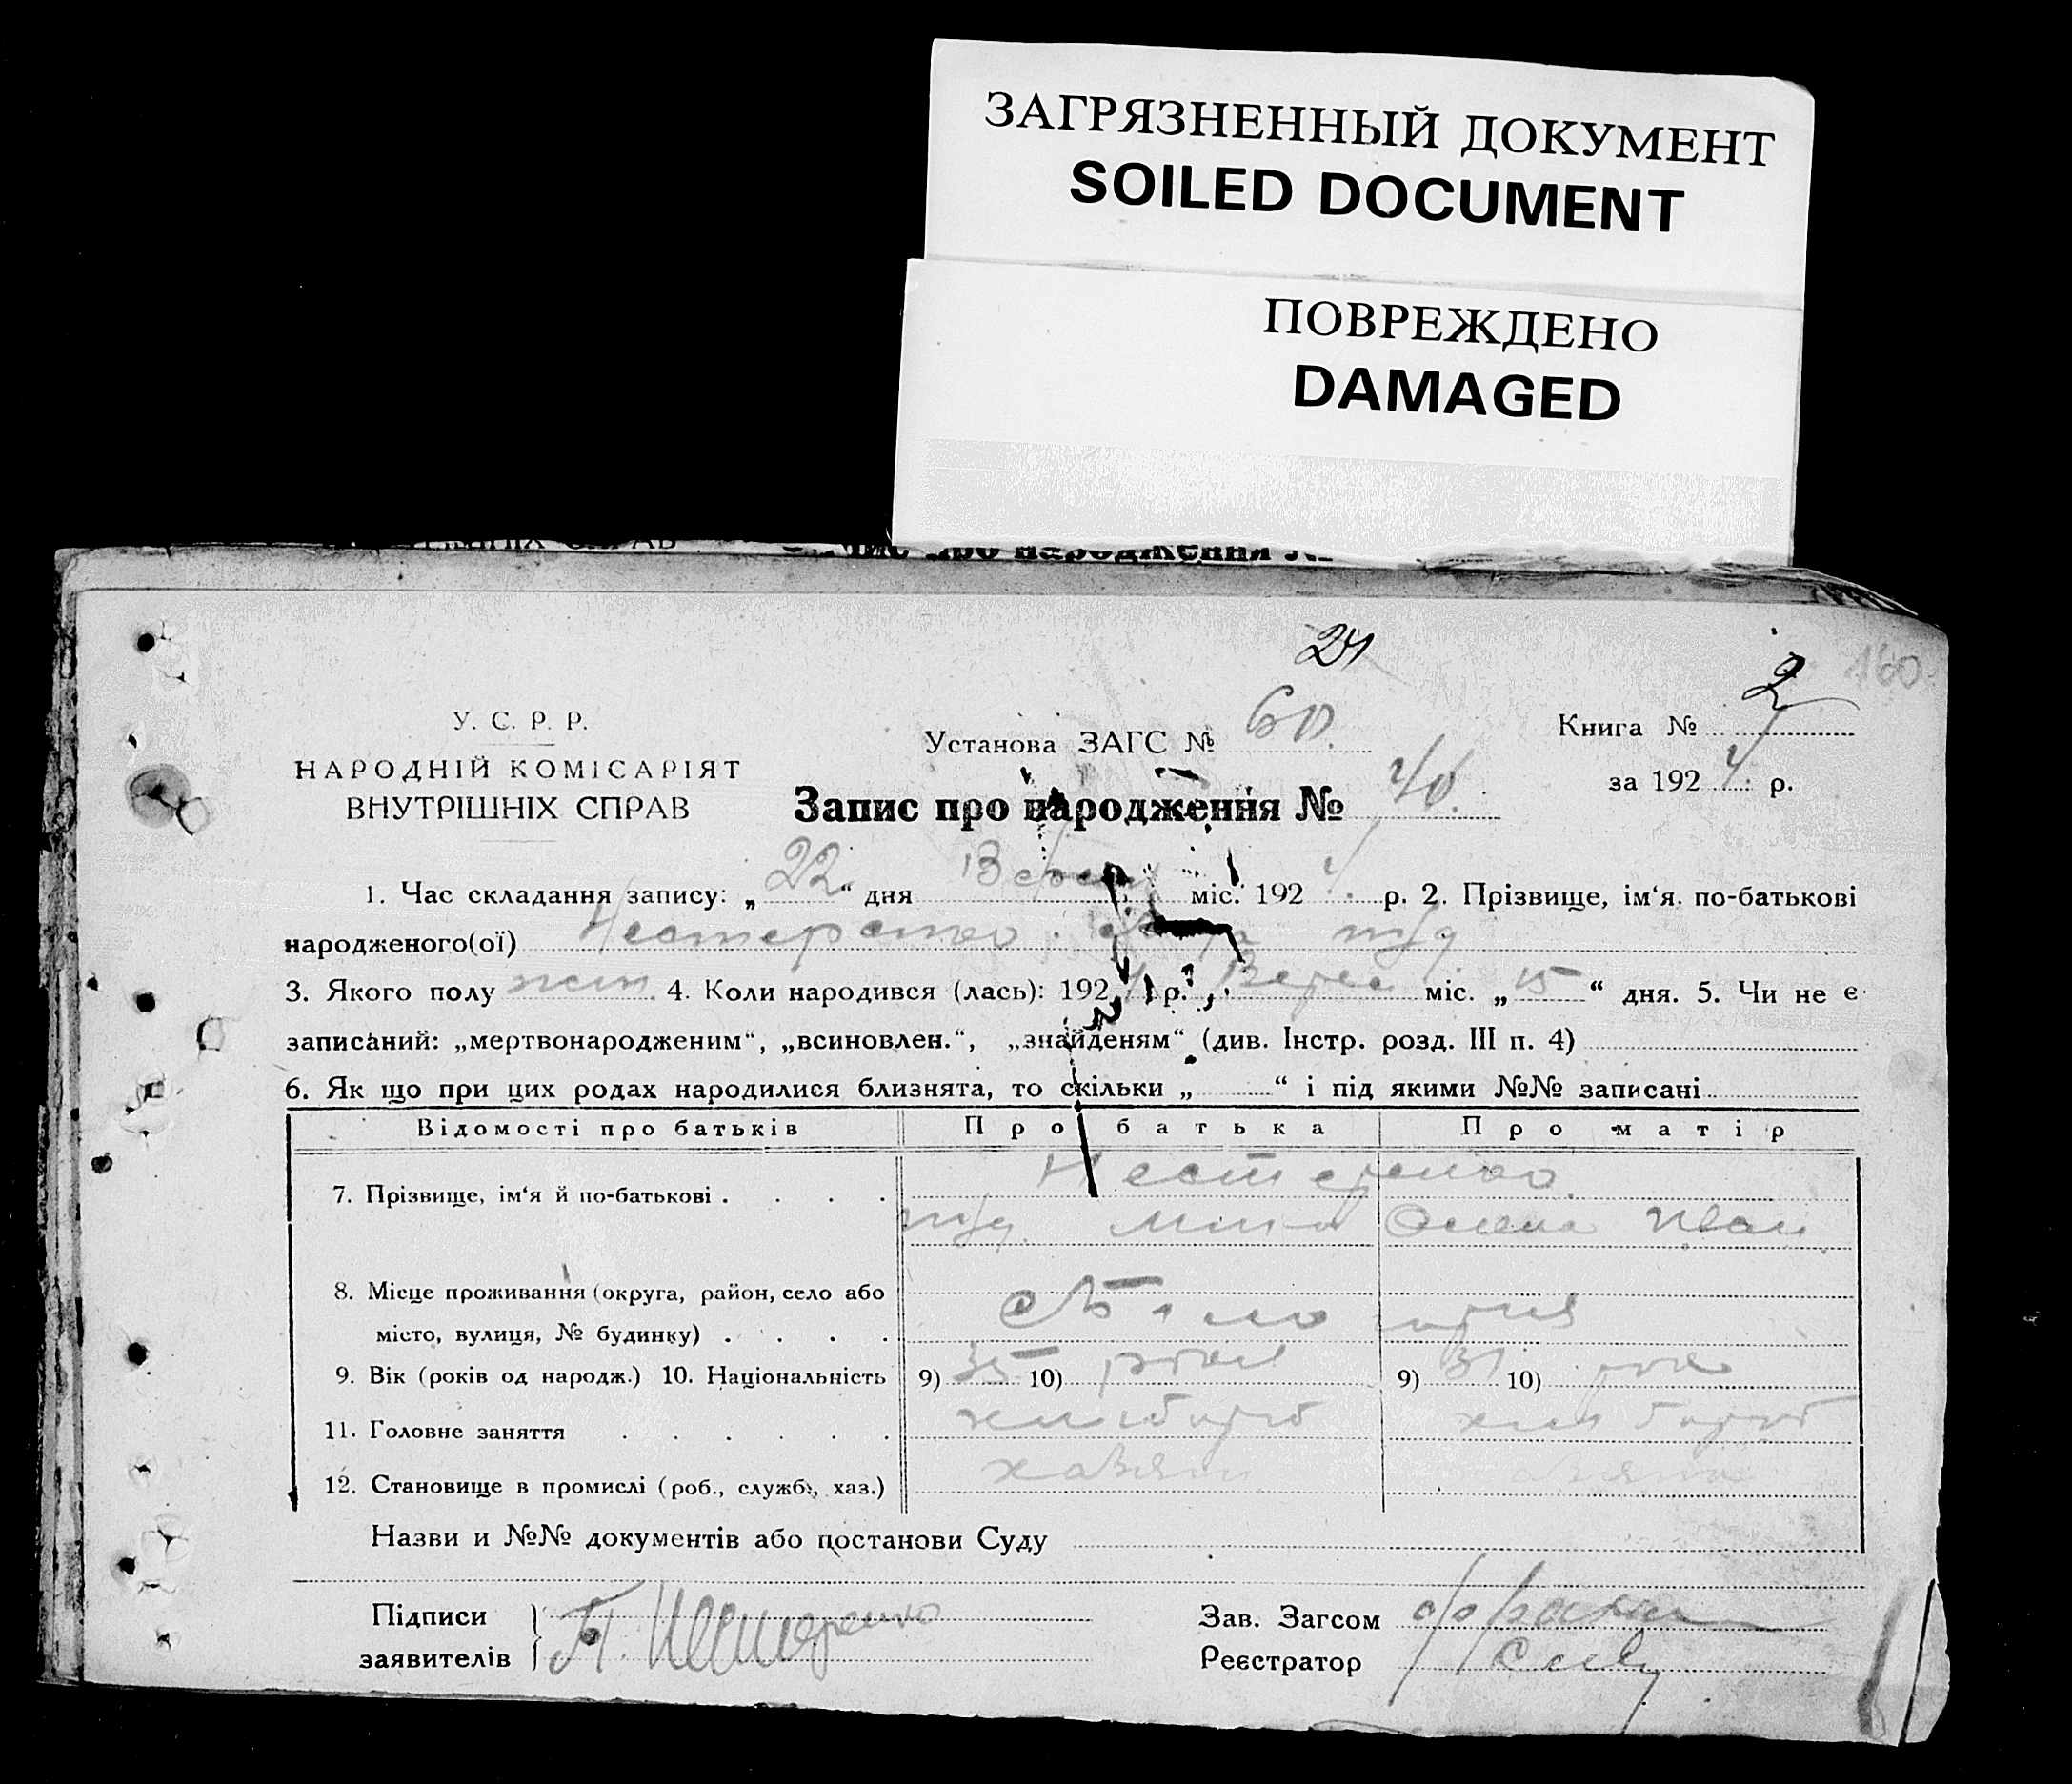 ЗАГРЯЗНЕННЫЙ ДОКУМЕНТ
SOILED DOCUMENT
ПОВРЕЖДЕНО
DAMAGED
про народження №
160
2
У. С. Р. Р.
НАРОДНІЙ КОМІСАРІЯТ
ВНУТРІШНІХ СПРАВ
Установа ЗАГС № 60.
Запис про народження № 40.
Книга №
за 192 4 р.
1. Час складання запису: „ 22 “ дня міс. 192 4 р. 2. Прізвище, ім‘я. по-батькові
народженого(ої) Нестеренко
3. Якого полу 4. Коли народився (лась): 192 р. Верес міс. „ 15 “ дня. 5. Чи не є
записаний: „мертвонародженим“, „всиновлен.“, „знайденям“ (див. Інстр. розд. III п. 4)
6. Як що при цих родах народилися близнята, то скільки „ “ і під якими №№ записані
Відомості про батьків Про батька Про матір
7. Прізвище, ім‘я й по-батькові . . . . Нестеренко
Олена Иван
8. Місце проживання (округа, район, село або
місто, вулиця, № будинку) . . . .
9. Вік (років од народж.) 10. Національність 9) 35 10) 9) 31 10)
11. Головне заняття . . . . . . хлибороб хлибороб
12. Становище в промислі (роб., служб., хаз.) хазяин
Назви и №№ документів або постанови Суду
Підписи
заявителів П. Нестеренко
Зав. Загсом
Реєстратор